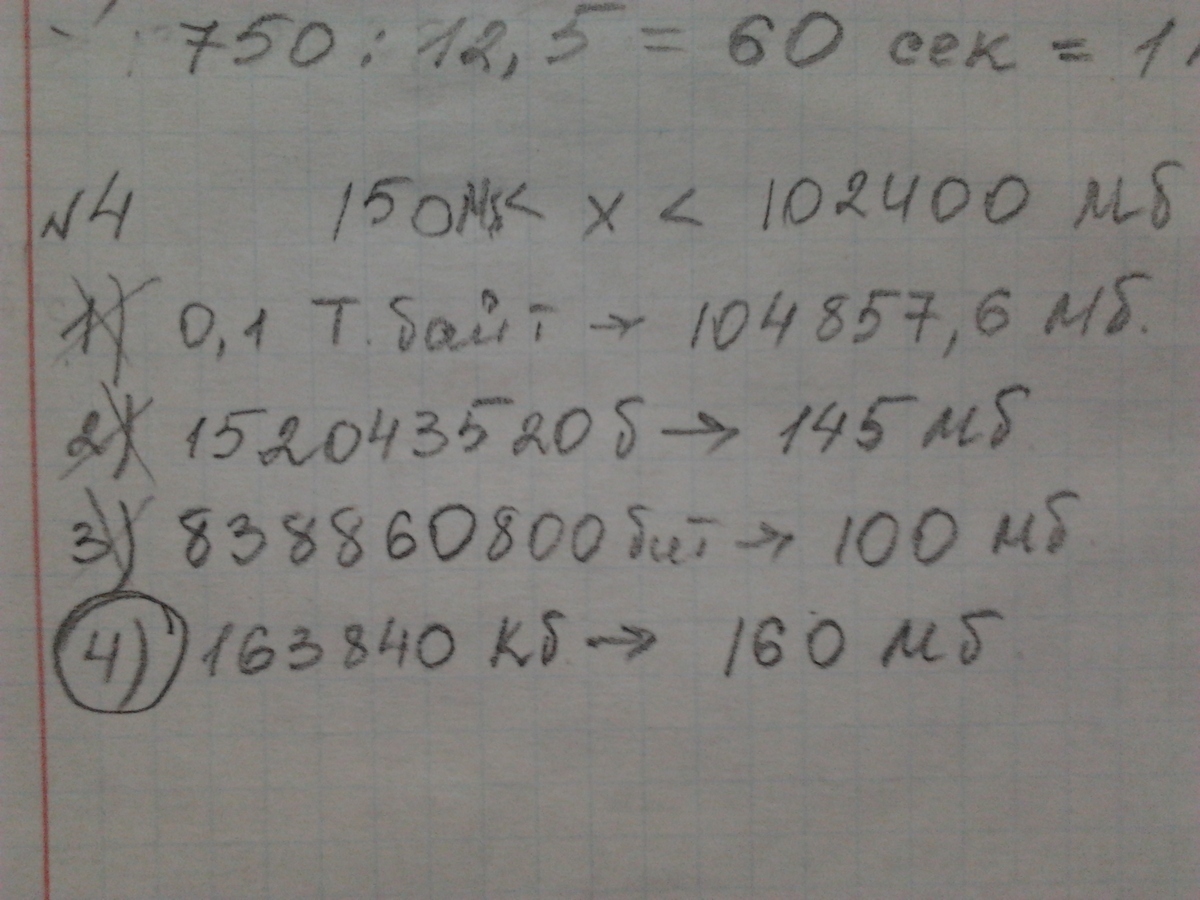 750 : 12,5 = 60 сек = 1
№4 150Мб < x < 102400 Мб
1) 0,1 Т.байт → 104857,6 Мб.
2) 152043520 б → 145 Мб
3) 838860800 бит → 100 Мб.
4) 163840 Кб. → 160 Мб.